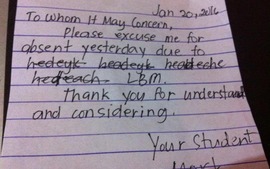 Jan 20, 2016
To Whom It May Concern,
Please excuse me for
absent yesterday due to
hedeyk headeyk headeche
hedteach LBM.
Thank you for understand
and considering.
Your Student
Mark